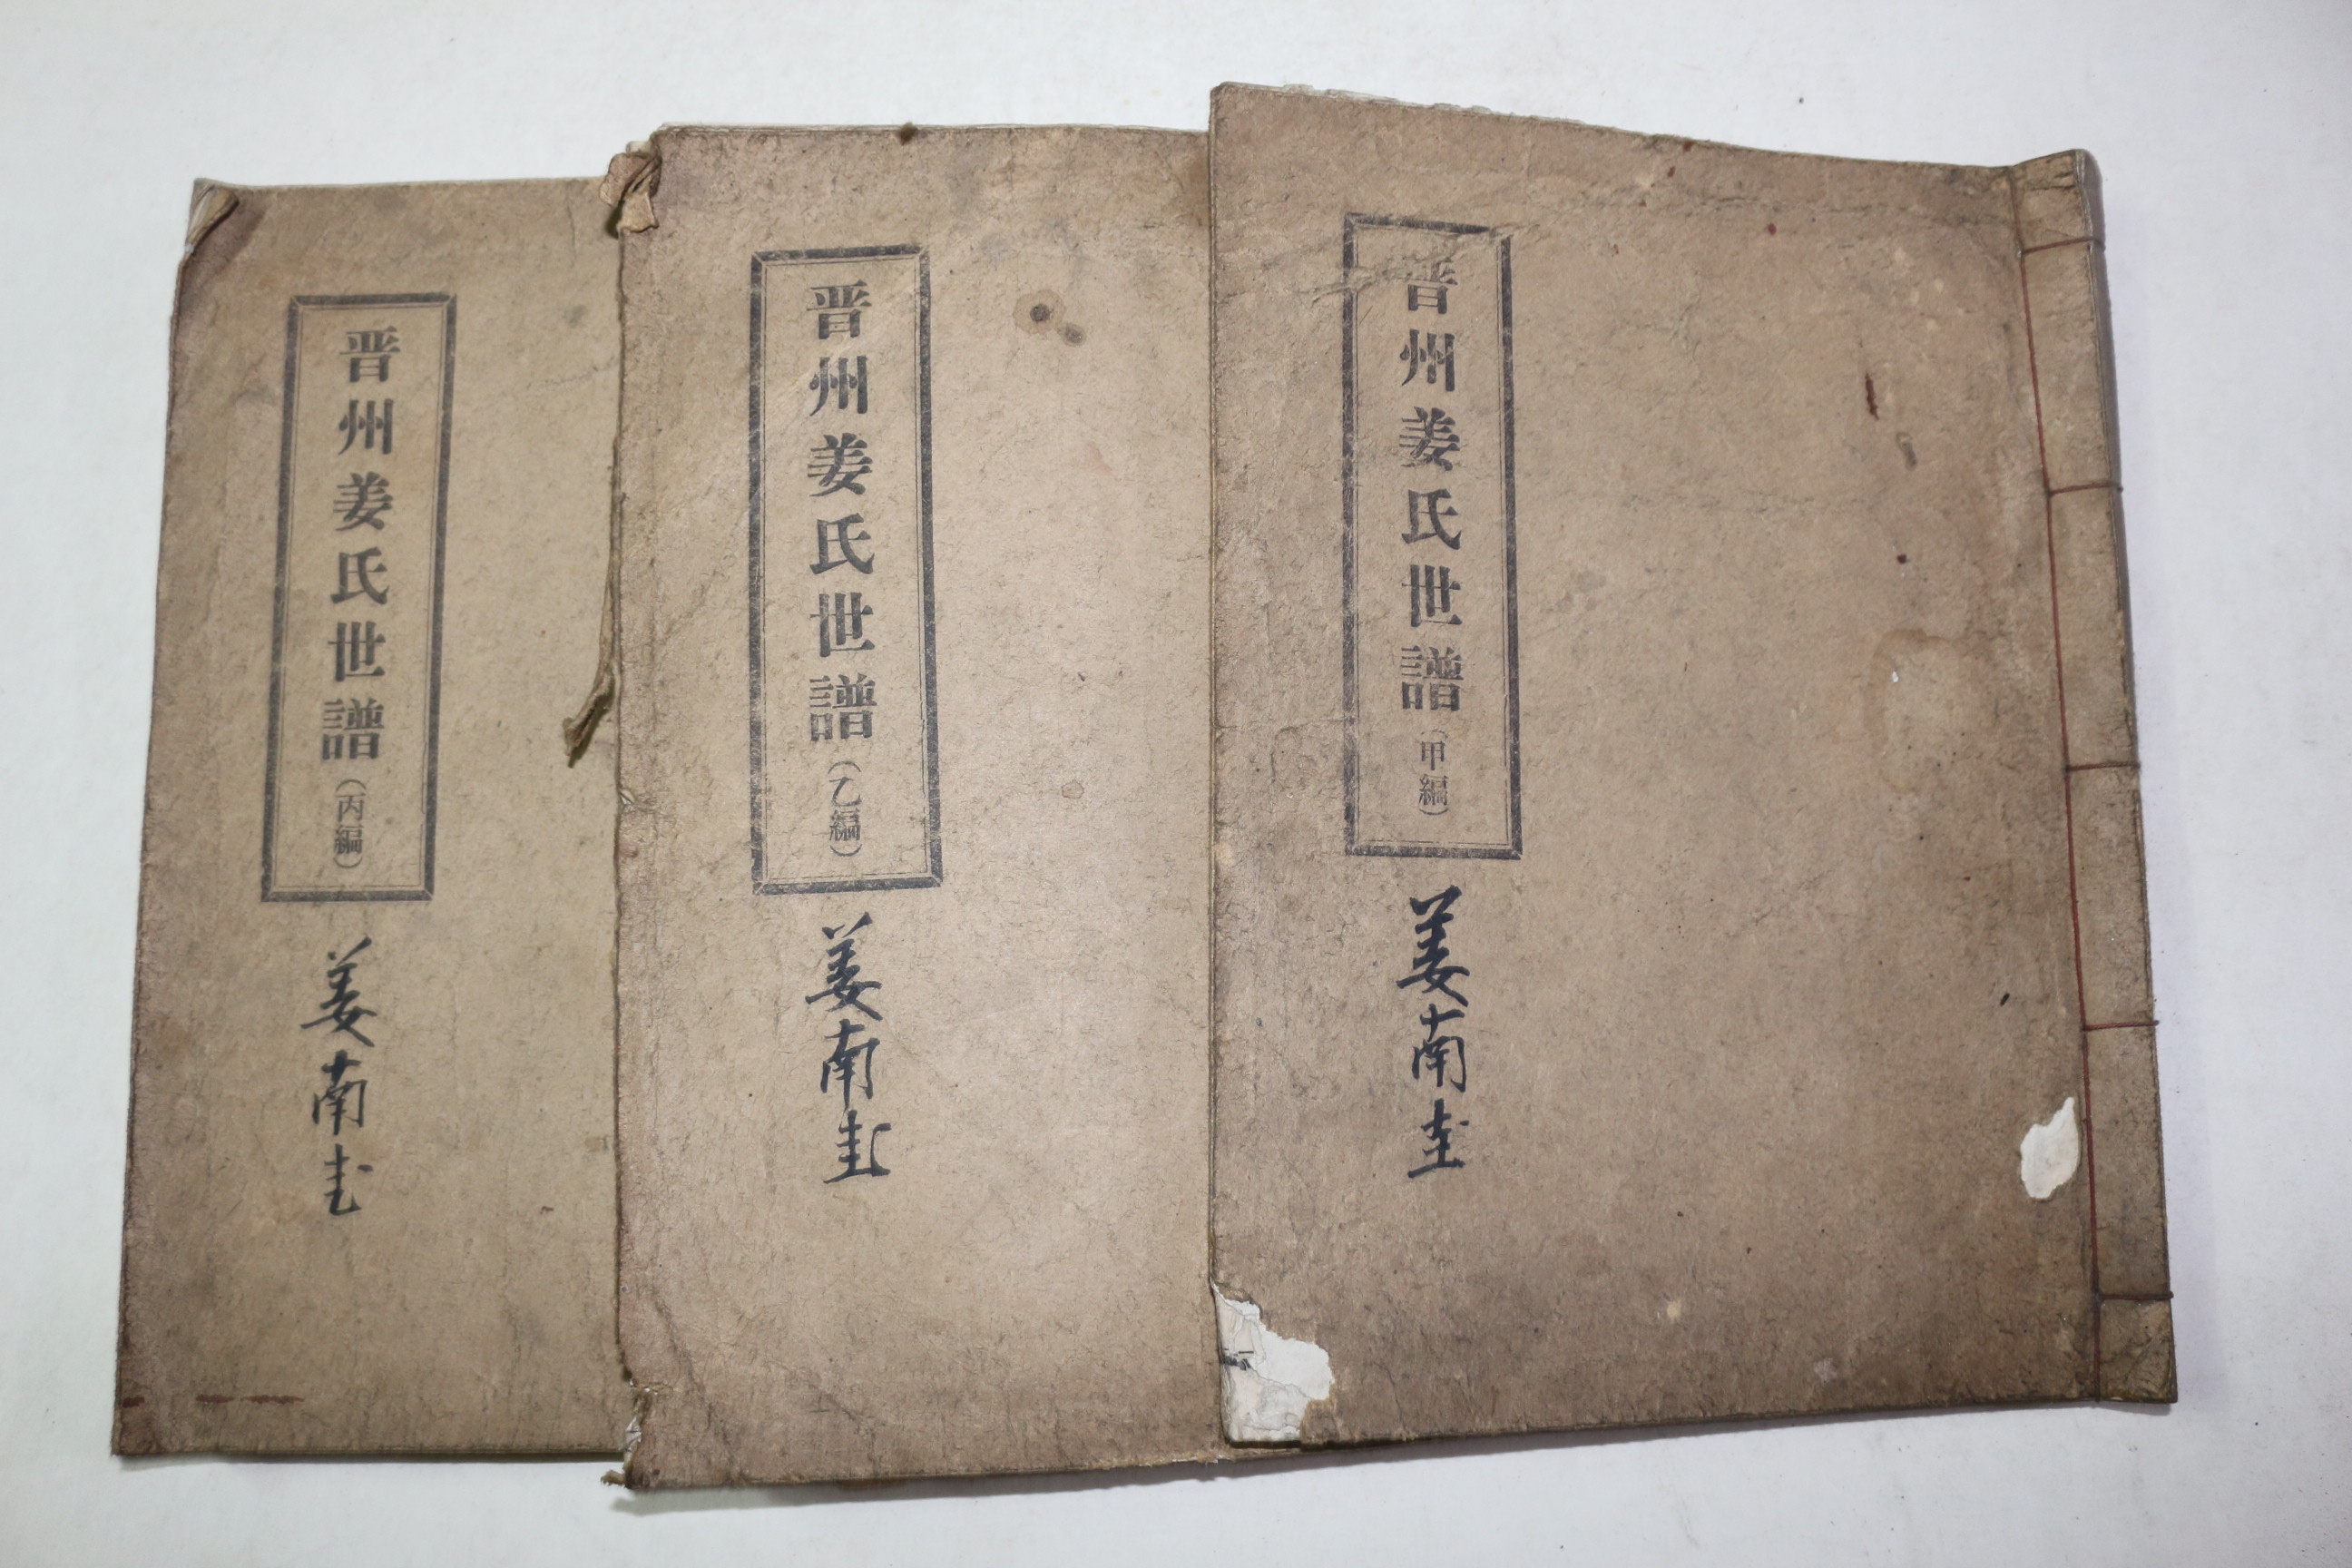 晋州姜氏世譜(甲編)
姜南圭
晋州姜氏世譜(乙編)
姜南圭
晋州姜氏世譜(丙編)
姜南圭